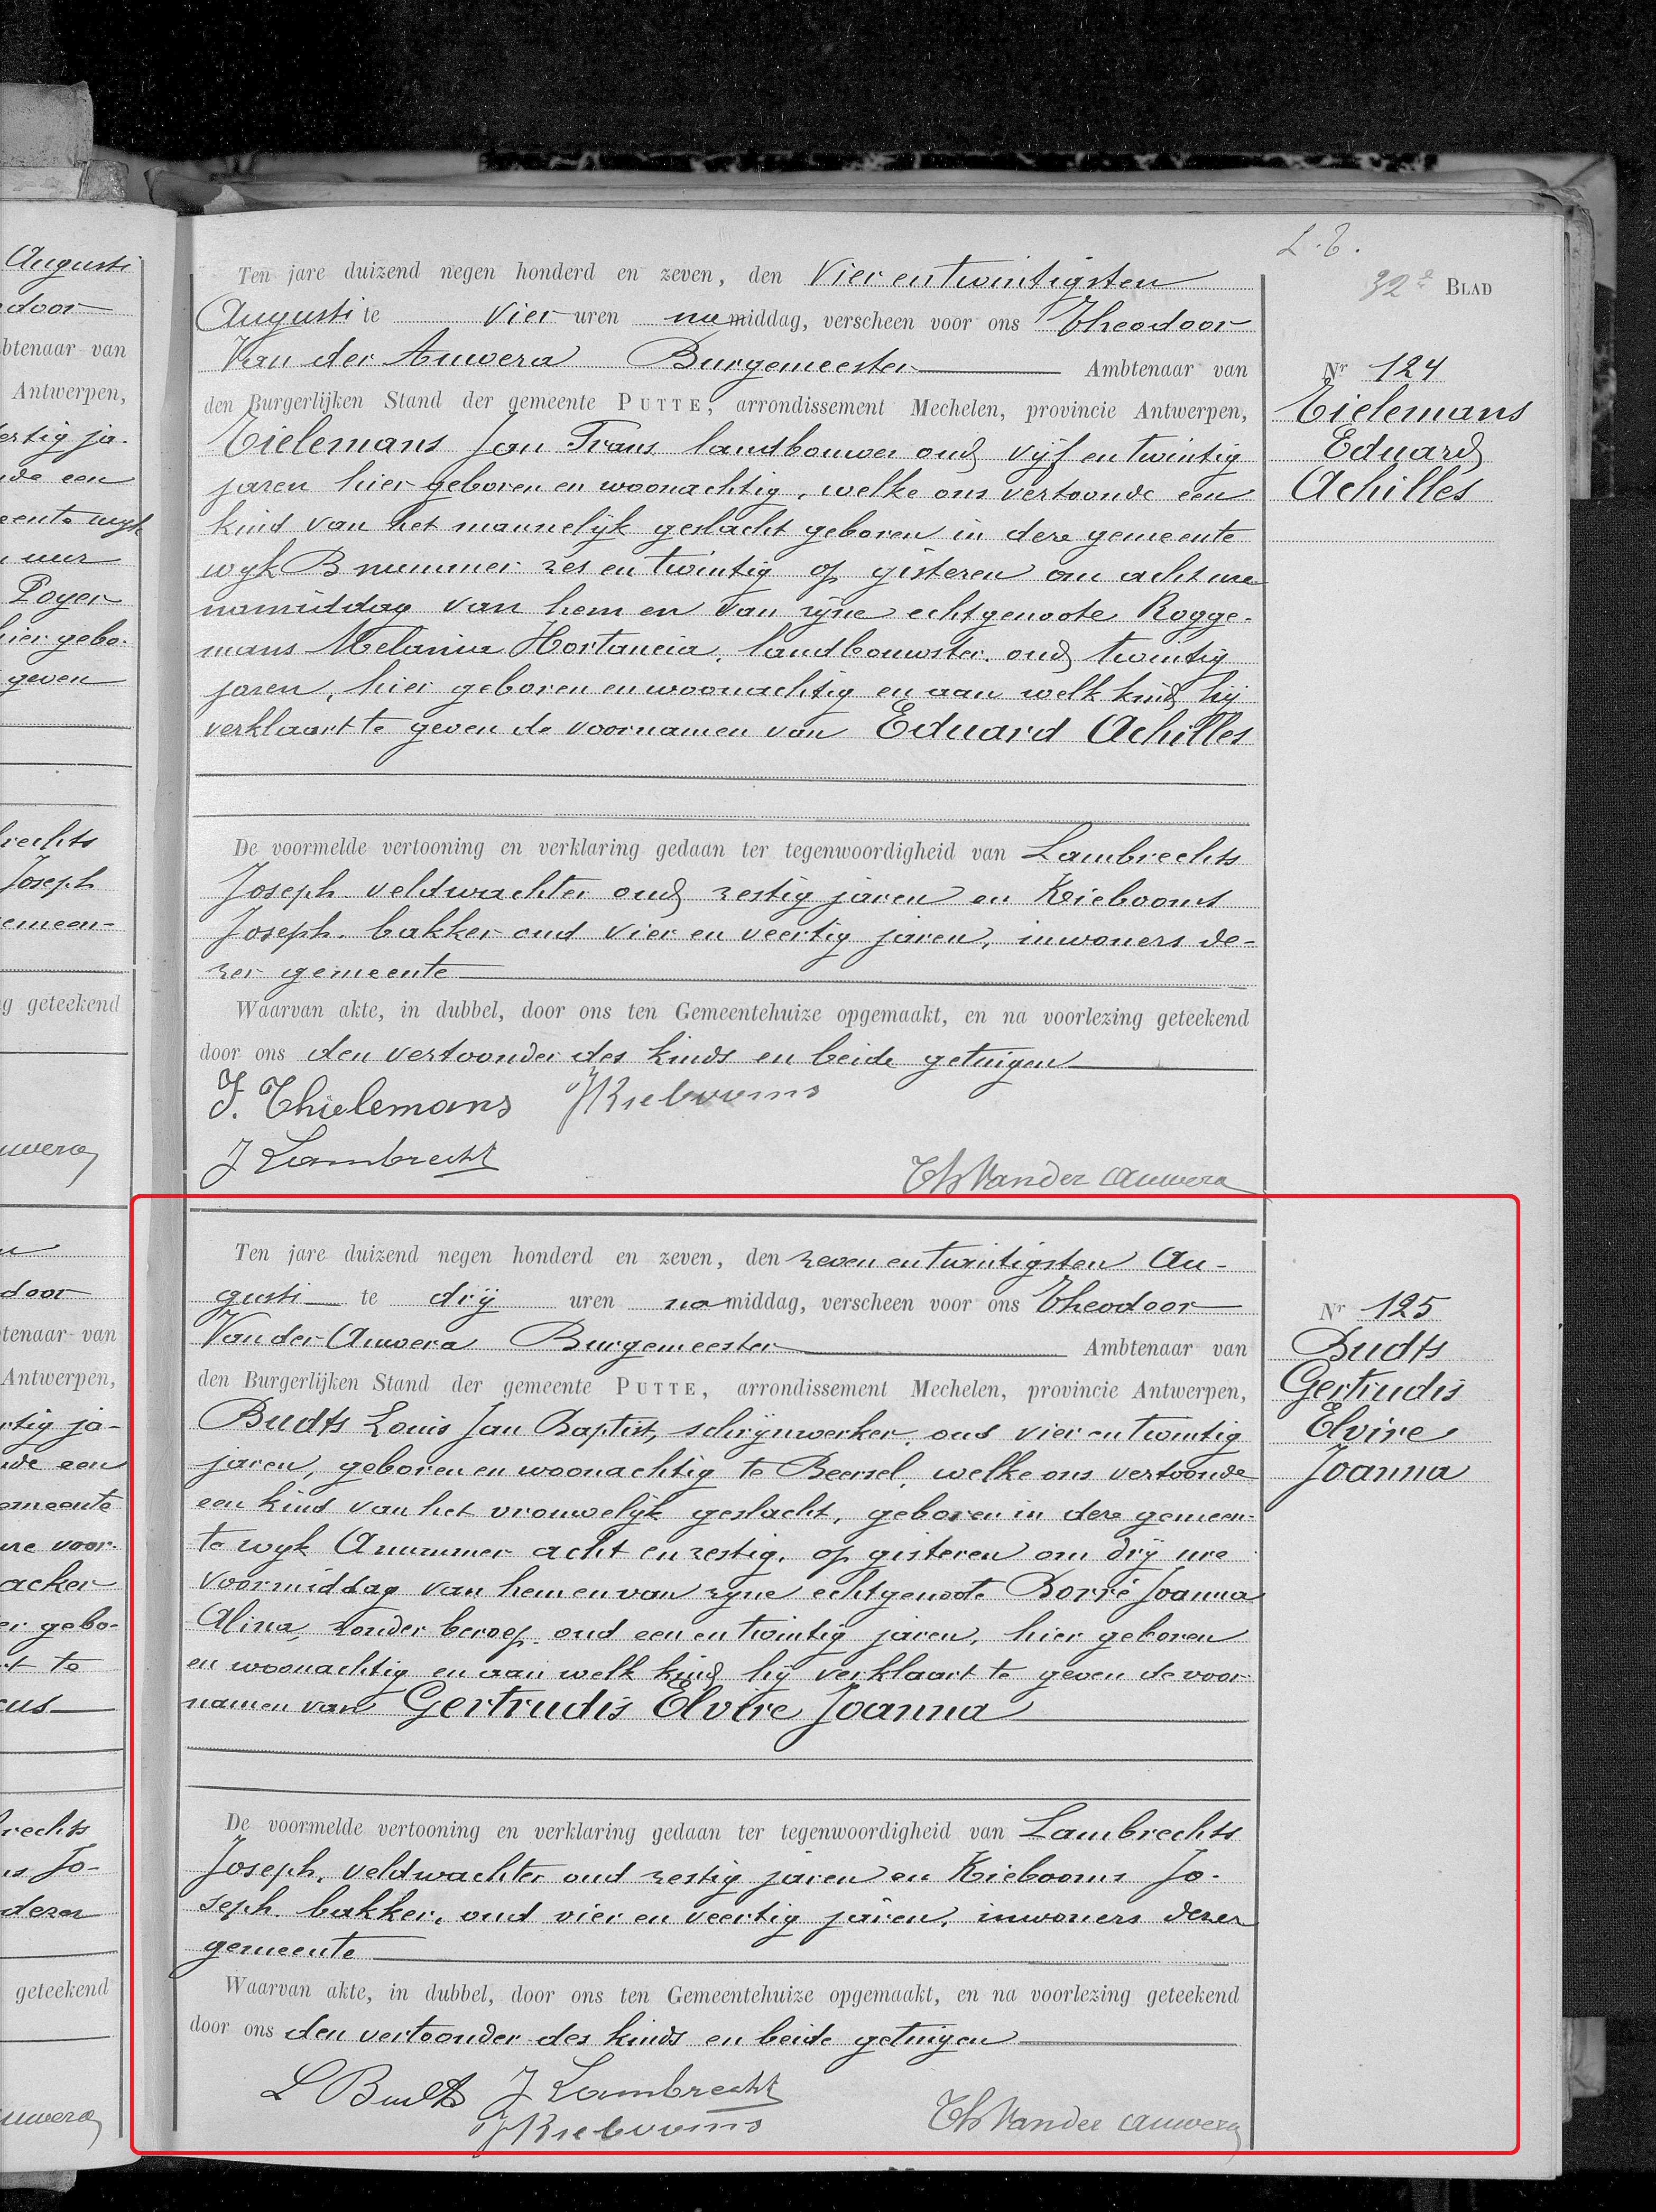 Augusti
door
btenaar van
Antwerpen,
ertig ja-
de een
eente wyk
uur
Poyer
hier gebo-
geven
brechts
Joseph
emeen-
g geteekend
uwera
door
tenaar van
Antwerpen,
rtig ja-
de een
emeente
ure voor-
acker
er gebo-
t te
cus
rechts
Jo-
dezer
geteekend
uwera
L. T.
32e BLAD
Ten jare duizend negen honderd en zeven, den vier en twintigsten
Augusti te vier uren namiddag, verscheen voor ons Theodoor
Van der Auwera Burgemeester Ambtenaar van
den Burgerlijken Stand der gemeente PUTTE, arrondissement Mechelen, provincie Antwerpen,
Tielemans Jan Frans landbouwer oud vijf en twintig
jaren hier geboren en woonachtig, welke ons vertoonde een
kind van het mannelijk geslacht geboren in deze gemeente
wyk B nummer zes en twintig op gisteren om acht ure
namiddag van hem en van zyne echtgenoote Rogge-
mans Melania Hortancia, landbouwster, oud twintig
jaren, hier geboren en woonachtig en aan welk kind hij
verklaart te geven de voornamen van Eduard Achilles
De voormelde vertooning en verklaring gedaan ter tegenwoordigheid van Lambrechts
Joseph veldwachter oud zestig jaren en Kiebooms
Joseph. bakker oud vier en veertig jaren, inwoners de-
zer gemeente
Waarvan akte, in dubbel, door ons ten Gemeentehuize opgemaakt, en na voorlezing geteekend
door ons den vertoonder des kinds en beide getuigen
J. Thielemans J Kiebooms
J Lambrecht
Th Vander Auwera
Nr 124
Tielemans
Eduard
Achilles
Ten jare duizend negen honderd en zeven, den zeven en twintigsten Au-
gusti te drij uren namiddag, verscheen voor ons Theodoor
Van der Auwera Burgemeester Ambtenaar van
den Burgerlijken Stand der gemeente PUTTE, arrondissement Mechelen, provincie Antwerpen,
Budts Louis Jan Baptist, schrijnwerker, oud vier en twintig
jaren, geboren en woonachtig te Beersel, welke ons vertoonde
een kind van het vrouwelyk geslacht, geboren in deze gemeen-
te wyk A nummer acht en zestig, op gisteren om drij ure
voormiddag van hem en van zyne echtgenoote Borré Joanna
Alina, zonder beroep, oud een en twintig jaren, hier geboren
en woonachtig en aan welk kind hij verklaart te geven de voor-
namen van Gertrudis Elvire Joanna
De voormelde vertooning en verklaring gedaan ter tegenwoordigheid van Lambrechts
Joseph, veldwachter oud zestig jaren en Kiebooms Jo-
seph. bakker, oud vier en veertig jaren, inwoners dezer
gemeente
Waarvan akte, in dubbel, door ons ten Gemeentehuize opgemaakt, en na voorlezing geteekend
door ons den vertoonder des kinds en beide getuigen
L Budts J Lambrecht
J Kiebooms Th Vander Auwera
Nr 125
Budts
Gertrudis
Elvire
Joanna